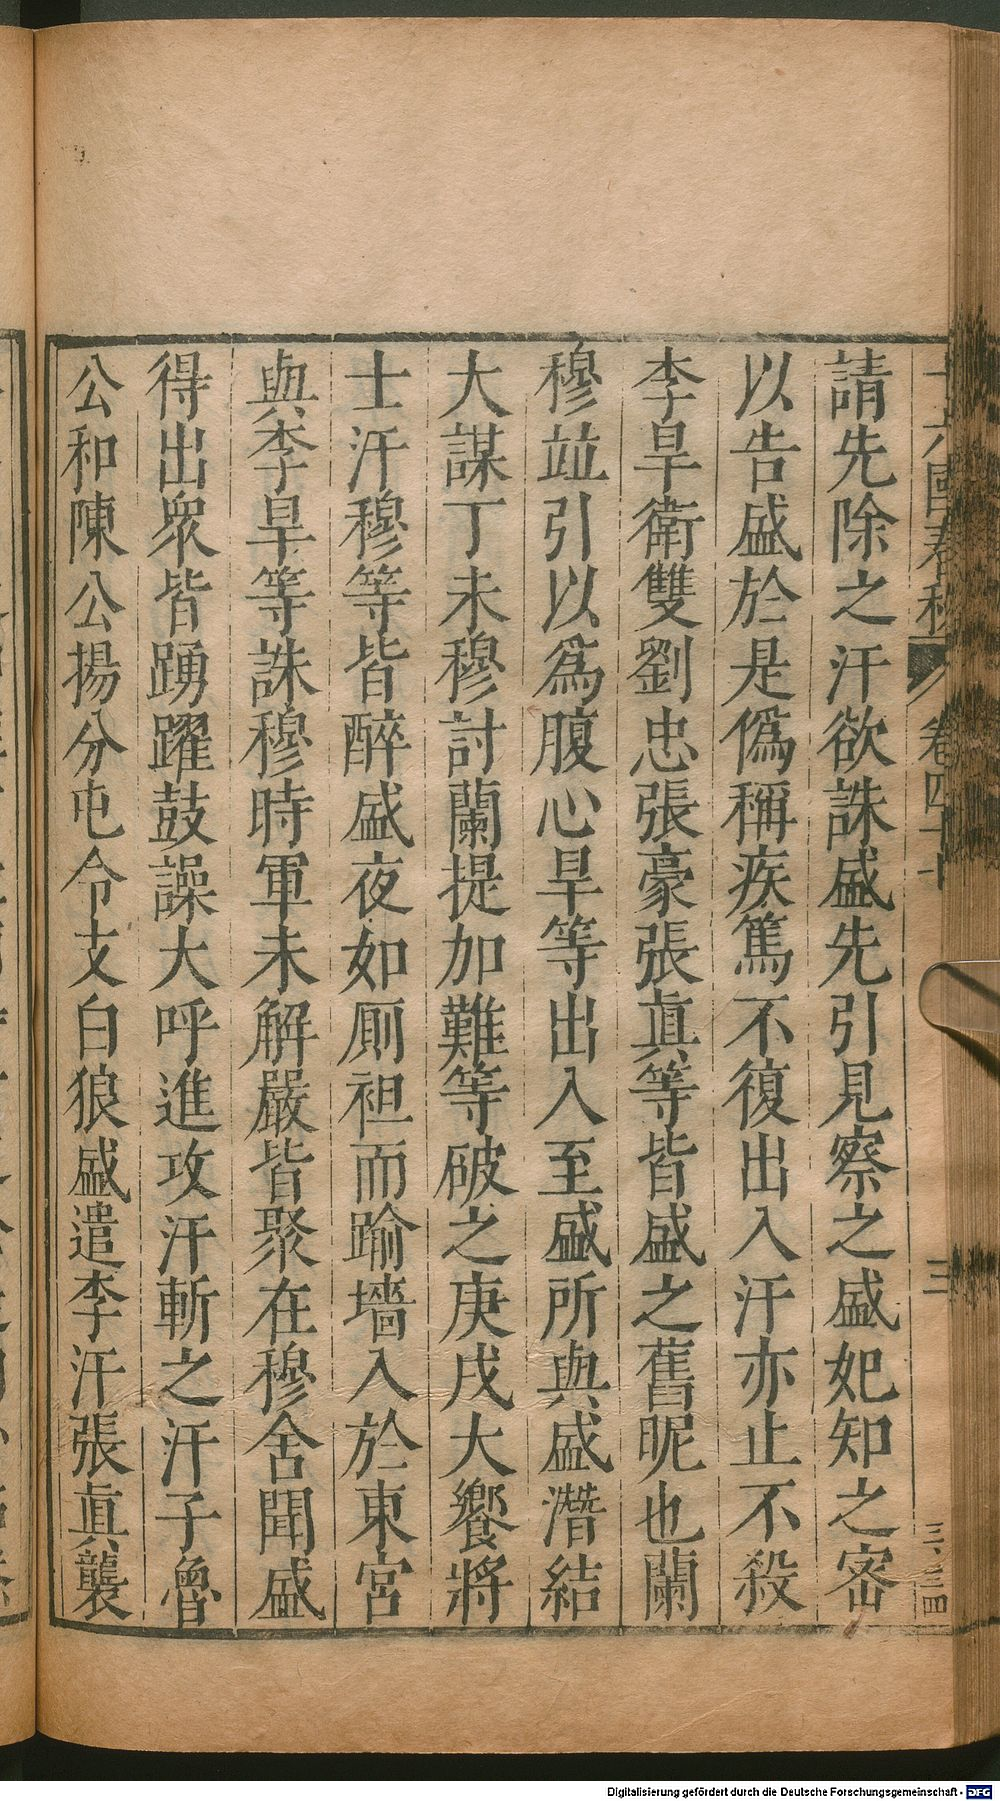 十六國春秋 卷四十七 三 三、三四
請先除之汗欲誅盛先引見察之盛妃知之密
以告盛於是偽稱疾篤不復出入汗亦止不殺
李旱衛雙劉忠張豪張眞等皆盛之舊昵也蘭
穆並引以爲腹心旱等出入至盛所與盛潛結
大謀丁未穆討蘭提加難等破之庚戌大饗將
士汗穆等皆醉盛夜如厠袒而踰墻入於東宮
與李旱等誅穆時軍未解嚴皆聚在穆舍聞盛
得出衆皆踴躍鼓譟大呼進攻汗斬之汗子魯
公和陳公揚分屯令支白狼盛遣李汗張眞襲
Digitalisierung gefördert durch die Deutsche Forschungsgemeinschaft - DFG